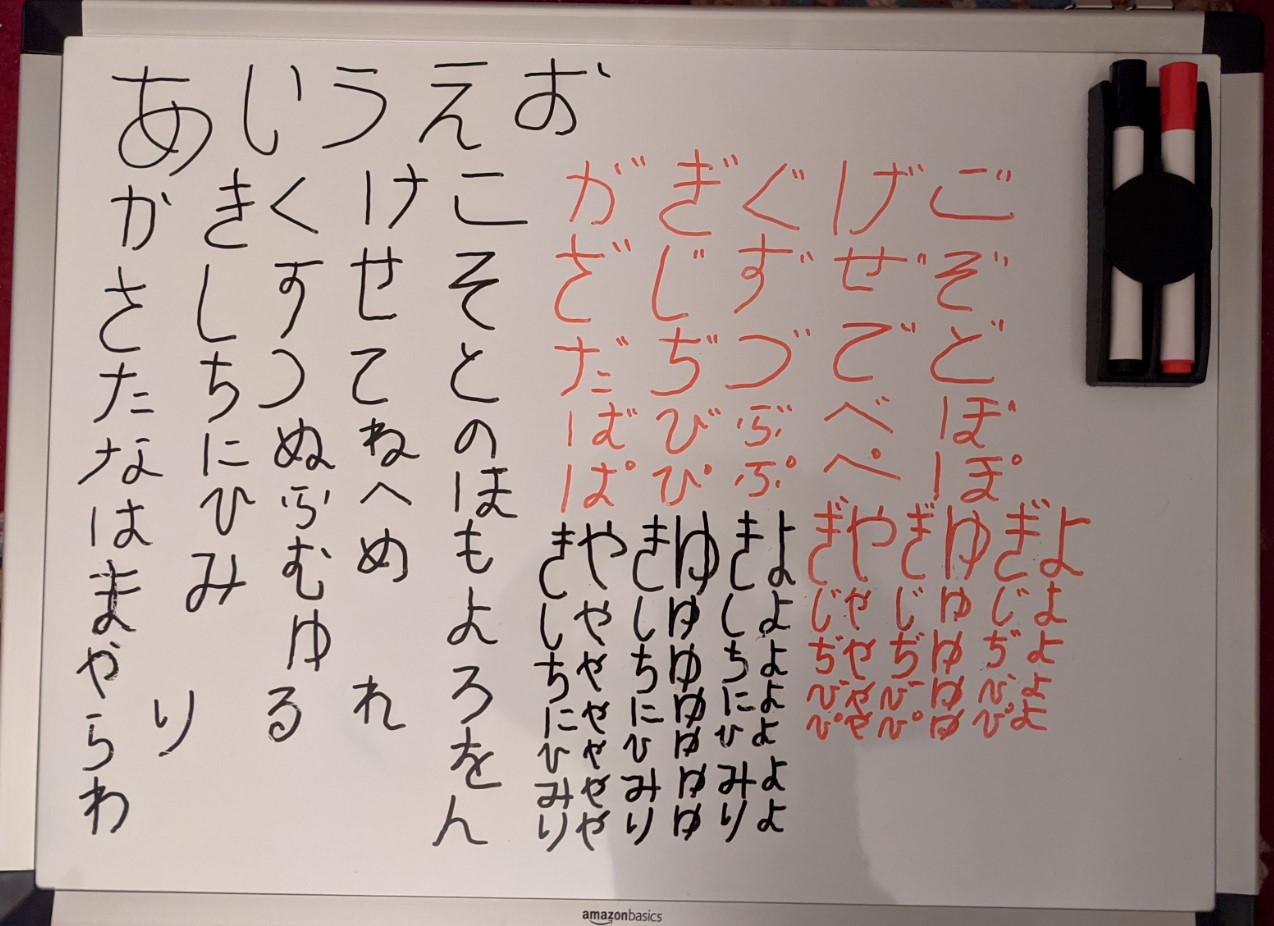 あいうえお
かきくけこ
さしすせそ
たちつてと
なにぬねの
はひふへほ
まみむめも
やゆよ
らりるれろ
わを
ん
がぎぐげご
ざじずぜぞ
だぢづでど
ばびぶべぼ
ぱぴぷぺぽ
きやきゆきよ
しやしゆしよ
ちやちゆちよ
にやにゆによ
ひやひゆひよ
みやみゆみよ
りやりゆりよ
ぎやぎゆぎよ
じやじゆじよ
ぢやぢゆぢよ
びやびゆびよ
ぴやぴゆぴよ
amazonbasics